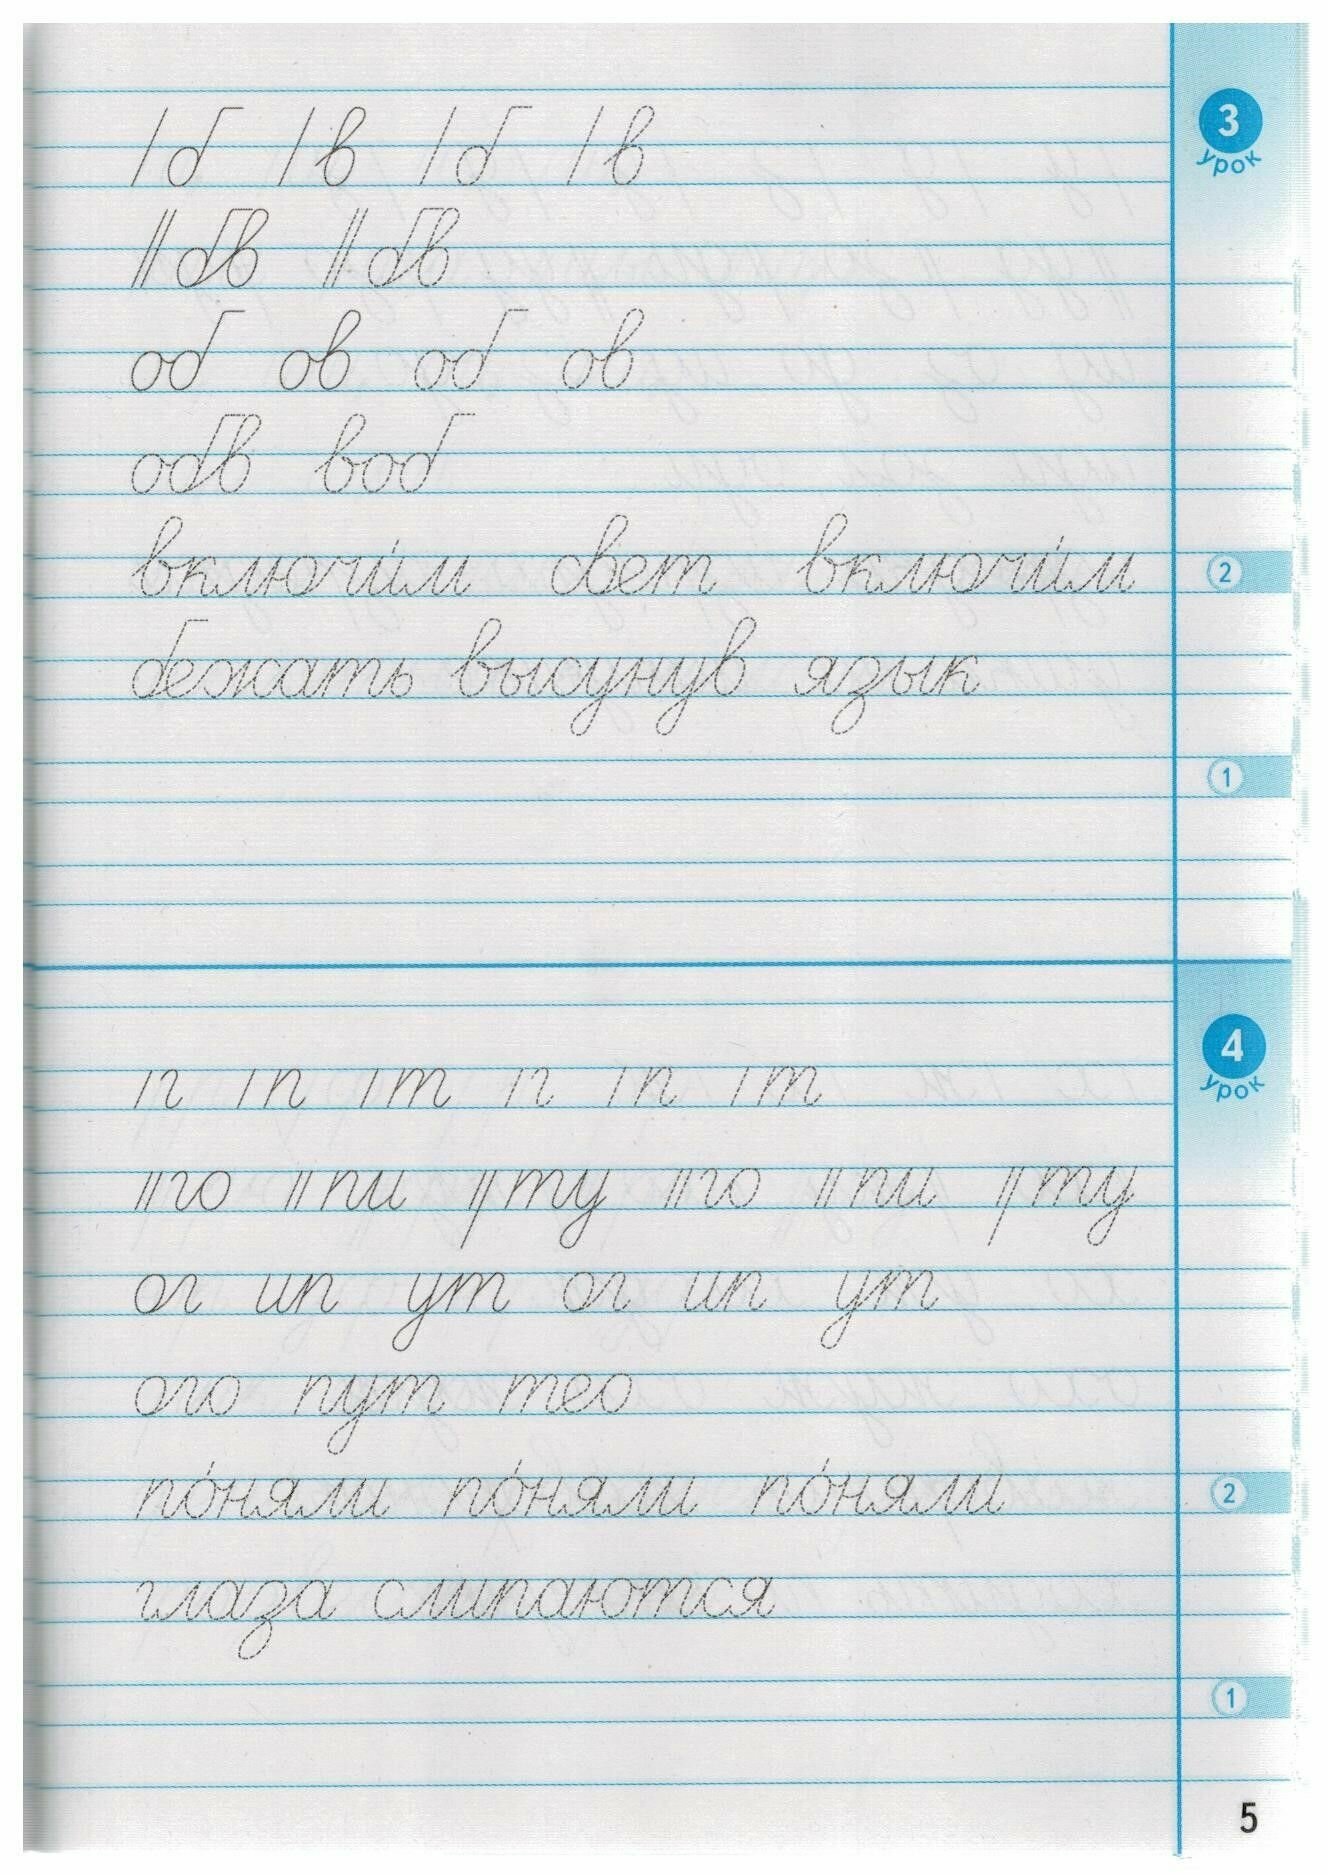 3
урок
|б |в |б |в
||бв ||бв
об ов об ов
обв воб
включи́м свет включи́м
2
бежать высунув язык
1
4
урок
|г |п |т |г |п |т
||го ||пи ||ту ||го ||пи ||ту
ог ип ут ог ип ут
ого пут тео
по́няли по́няли по́няли
2
глаза слипаются
1
5